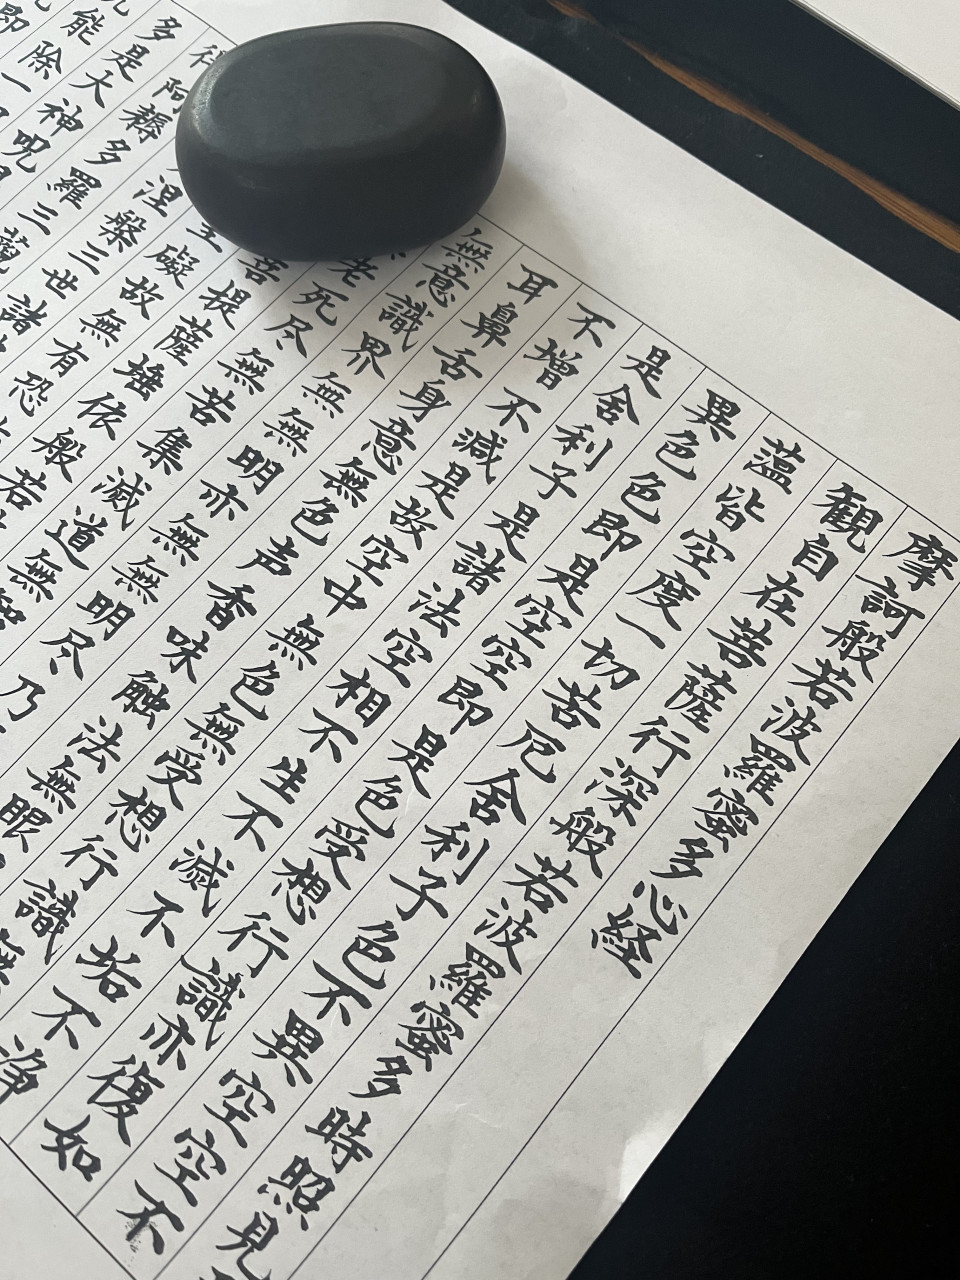 摩訶般若波羅蜜多心経
観自在菩薩行深般若波羅蜜多時照見
蘊皆空度一切苦厄舎利子色不異空空不
異色色即是空空即是色受想行識亦復如
是舎利子是諸法空相不生不滅不垢不浄
不増不減是故空中無色無受想行識無
耳鼻舌身意無色声香味触法無眼
無意識界無無明亦無無明尽乃
老死尽無苦集滅道無智
菩提薩埵依般若
礙故無有恐
涅槃三世諸
得阿耨多羅三藐
多是大神呪
能除一
即